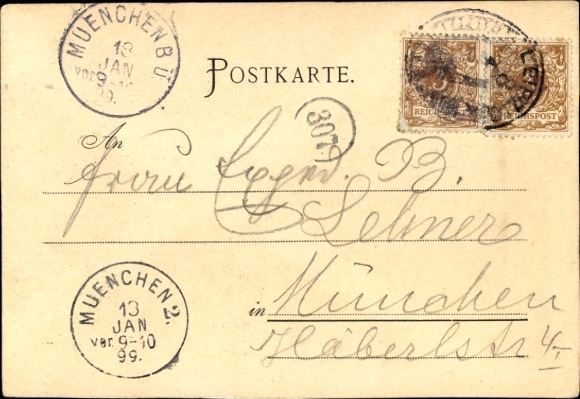 MUENCHEN B.Ü.
13
JAN
vor. 9-10
99.
POSTKARTE.
3
REICHSPOST
REICHSPOST
3079
An
Frau B.
Lehner
in München
Häberlstr 4
MUENCHEN 2.
13
JAN
vor. 9-10
99.